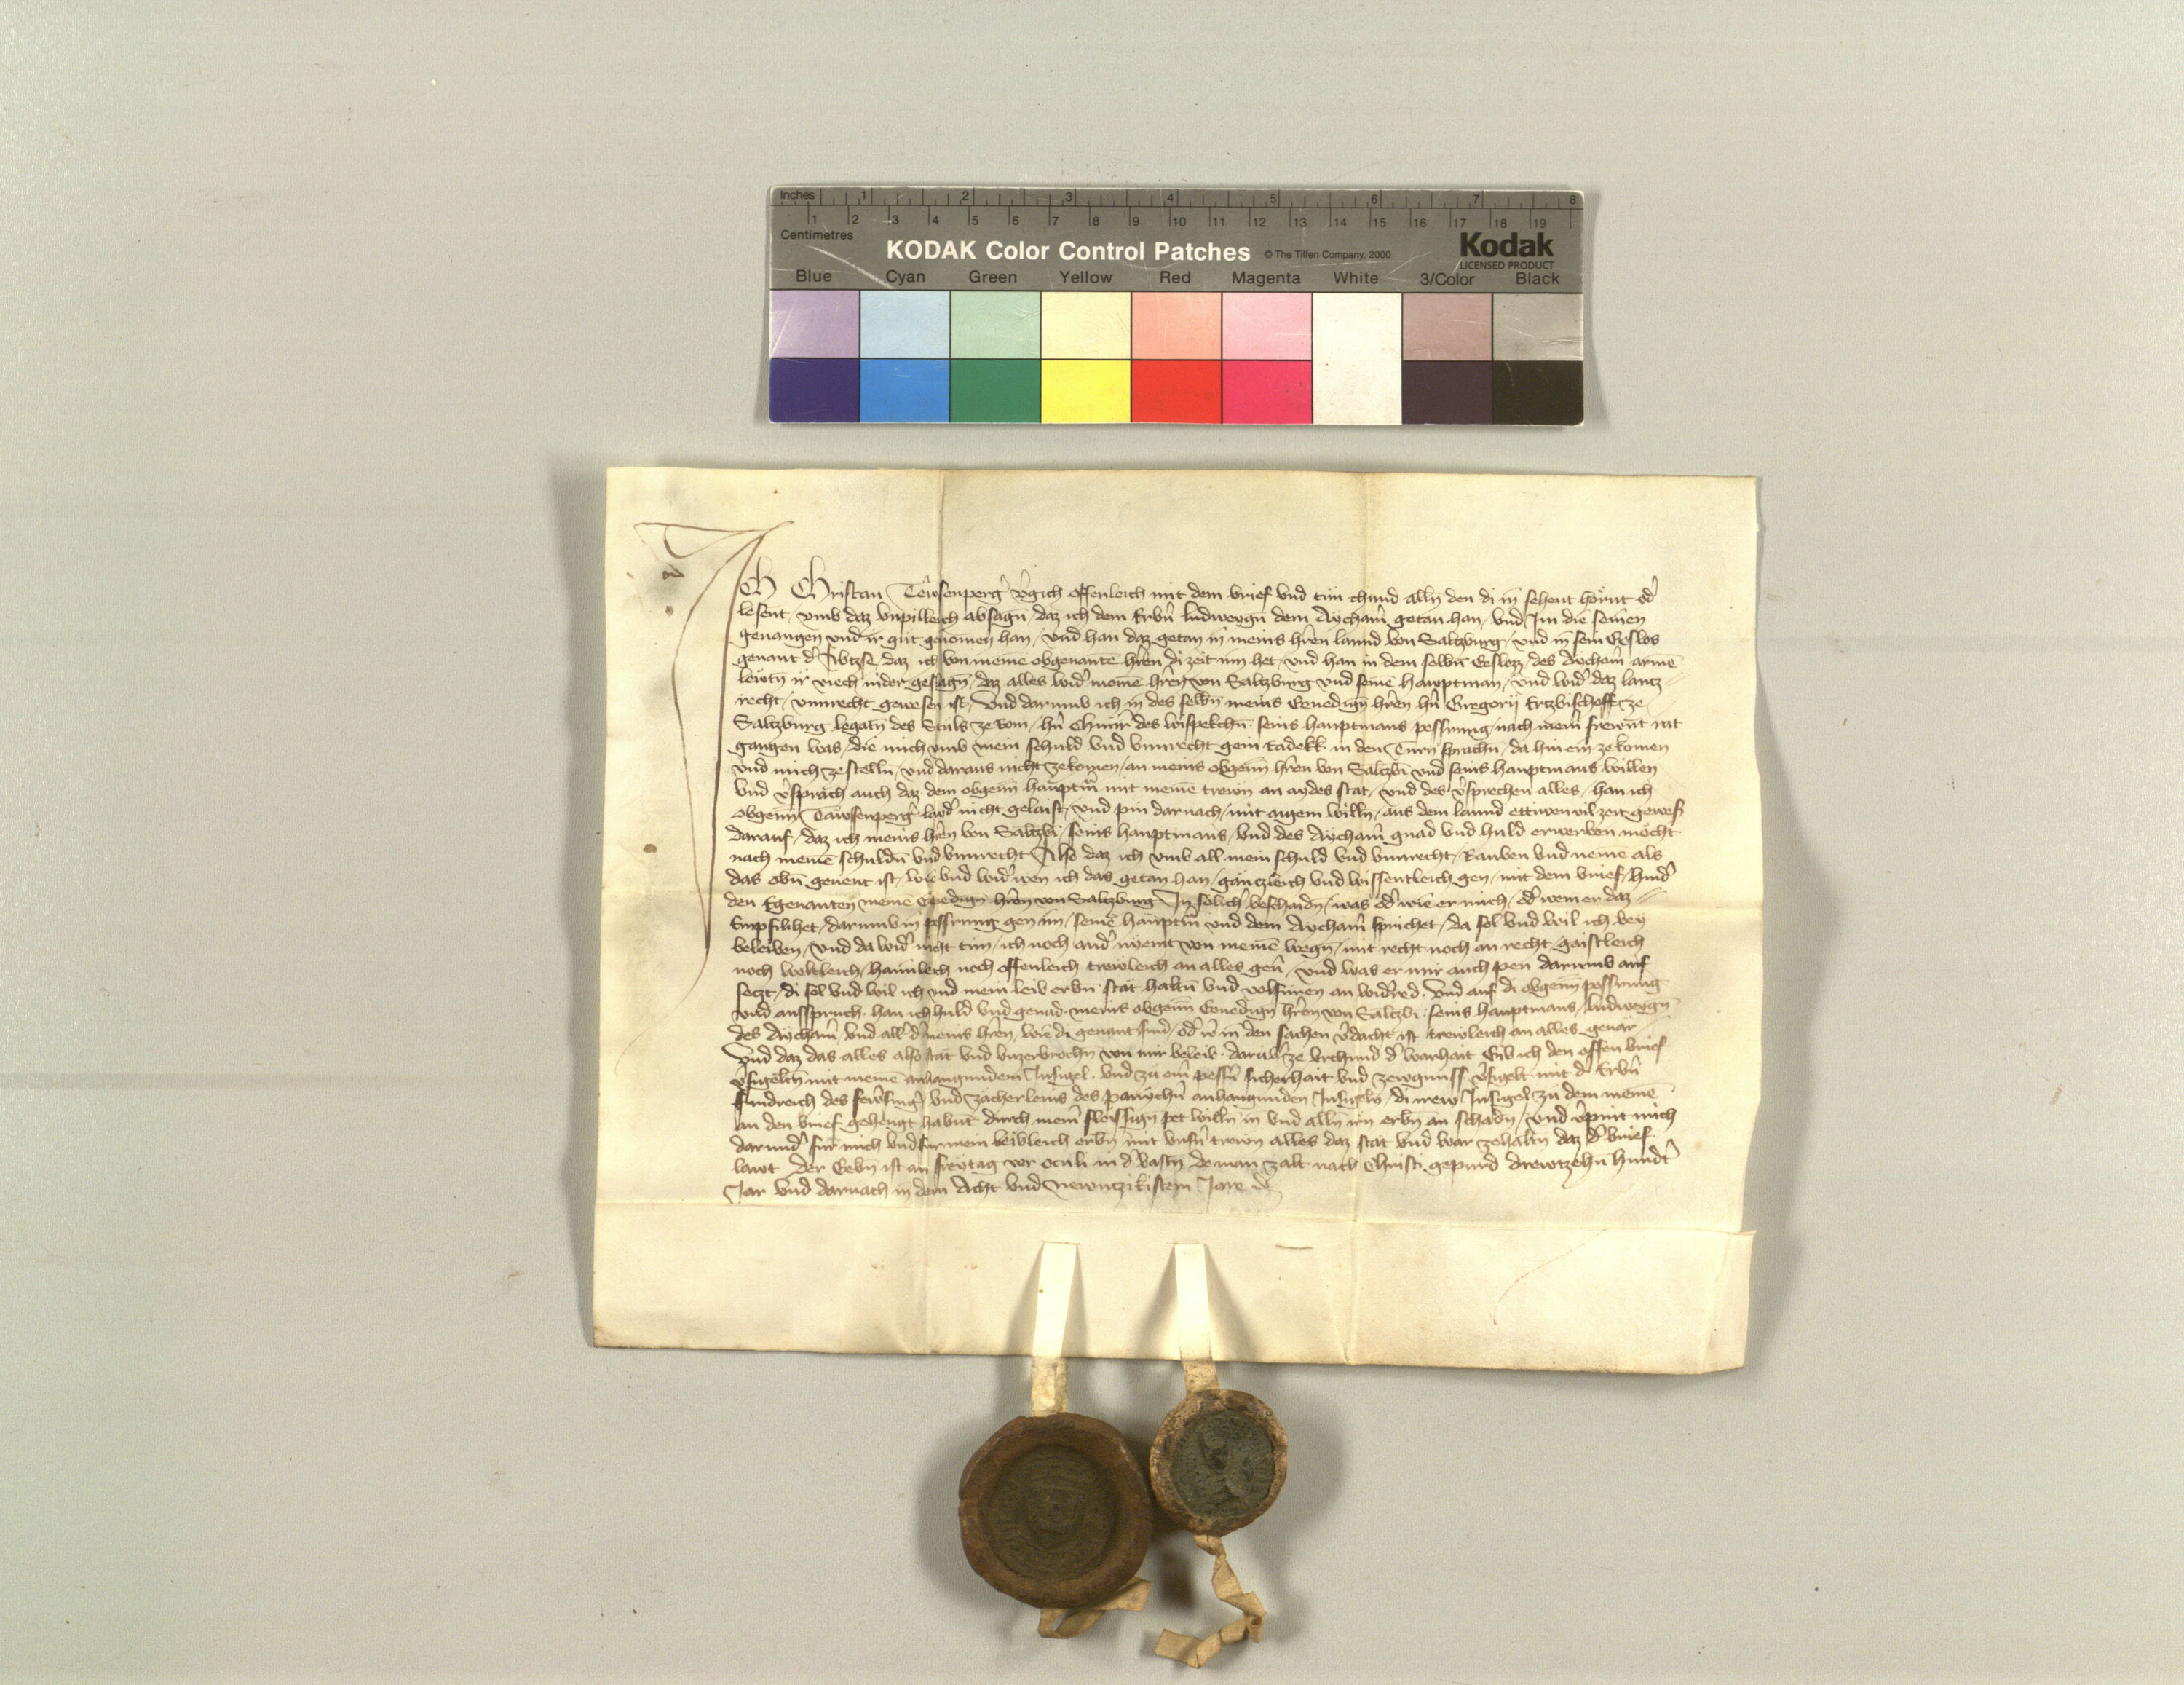 Inches 1 2 3 4 5 6 7 8
1 2 3 4 5 6 7 8 9 10 11 12 13 14 15 16 17 18 19
Centimetres
KODAK Color Control Patches © The Tiffen Company, 2000 Kodak
LICENSED PRODUCT
Blue Cyan Green Yellow Red Magenta White 3/Color Black
Ich Christan Tewsenperg̉ v̉gich offenleich mit dem brief vnd tun chund alln den di in sehent hörnt od̉
lesent / vmb daz vnpilleich absagn̄ / daz ich dem Erbn̄ ludweygn̄ dem Aychaīn getan han / vnd Im die seinen
geuangen vnd ir gut genomen han / vnd han daz getan in meins hr̄en lannd von Saltzburg / vnd in sein Geslos
genant d̉ / daz ich von meinē obgenantē hr̄en di zeit inn het / vnd han in dem selbn̄ Geslozz / des Aychaīn armē
lewtn ir viech nider geslagn̄ / daz alles wid̉ meinē hr̄en von Saltzburg vnd seinē hauptman / vnd wid̉ daz lantz
recht / vnrecht gewesen ist / Vnd darumb ich in des selbn̄ meins Genedign̄ hr̄en hn̄ Gregorÿ Ertzbischoff ze
Saltzburg legatn̄ des Stuls ze Rom / hn̄ des wispekchn̄ seins hauptmans pessrung / nach mein̄ frewnt rat
gangen was / die mich vmb mein schuld vnd vnrecht gein Radekk in den Turn sprachn̄ / da hin ein ze komen
vnd mich ze stelln̄ / vnd daraus nicht ze komen / an meins obgen̄n hr̄en von Saltzb̄ vnd seins hauptmans willen
vnd v̉sprach auch daz dem obgen̄n hauptm̄ mit meinē trewn an aydes stat / vnd des v̉sprechen alles / han ich
obgen̄n Tawsenperg̉ laid̉ nicht gelaist / vnd pin darnach / mit aigem willn / aus dem lannd ettwevil zeit gewesn̄
darauf / daz ich meins hr̄en von Saltzb̄ / seins hauptmans / vnd des Aychaīn gnad vnd huld erwerben möcht
nach meinē schuldn̄ vnd vnrecht Also daz ich vmb all mein schuld vnd vnrecht / Rauben vnd nemē als
das obn̄ genent ist / wie vnd wid̉ wen ich das getan han / gäntzleich vnd wissentleich gen / mit dem brief / hind̉
den Egenanten meinē Genedign hr̄en von Saltzburg In solich̉ beschaidn̄ / was od̉ wie er mich / od̉ wem er daz
Empfilhet / darumb in pessrung gen im / seinē hauptm̄ vnd dem Aychaīn sprichet / da sol vnd wil ich bey
beleiben / vnd da wid̉ nicht tun / ich noch and̉ nyemt von meinē wegn̄ / mit recht noch an recht gaistleich
noch weltleich / haimleich noch offenleich trewleich an alles geu̇ / vnd was er mir auch pen darumb auf
seczt / di sol vnd wil ich vnd mein leib erbn̄ stät haltn̄ vnd volfuren an wid̉red . Vnd auf di obgen̄n pessrung
vnd ausspruch han ich huld vnd genad meins obgen̄n Genedign̄ hr̄en von Saltzb̄ seins hauptmans / ludweygn̄
des Aychaīn / vnd all̉ d̉ meins hr̄en / wie di genant sind / od̉ wer in den sachen v̉dacht ist trewleich an alles geuär
Vnd daz das alles also stät vnd vnzerbrochn̄ von mir beleib darub̉ ze vrchund d̉ warhait Gib ich den offen brief
v̉sigeltn̄ mit meinē anhangundem Insigel / vnd zu ein̄ pessn̉ sicherhait vnd zewgnuss v̉sigelt mit d̉ Erbn̄
fridreich des / vnd des anhangunden Insigeln / di irew Insigel zu dem meinē
an den brief gehengt habnt durch mein̄ fleissign̄ pet willn in vnd alln̄ irn erbn̄ an schadn / vnd v̉pint mich
darund̉ fur mich vnd fur mein leibleich erbn mit vnsn̉ trewn alles daz stät vnd war ze haltn daz d̉ brief
lawt Der Gebn̄ ist an freytag vor oculi in d̉ vastn do man zalt nach Christi gepurd drewtzehn̄ hund̉t
Jar vnd darnach in dem Acht vnd Newntzikistem Jare